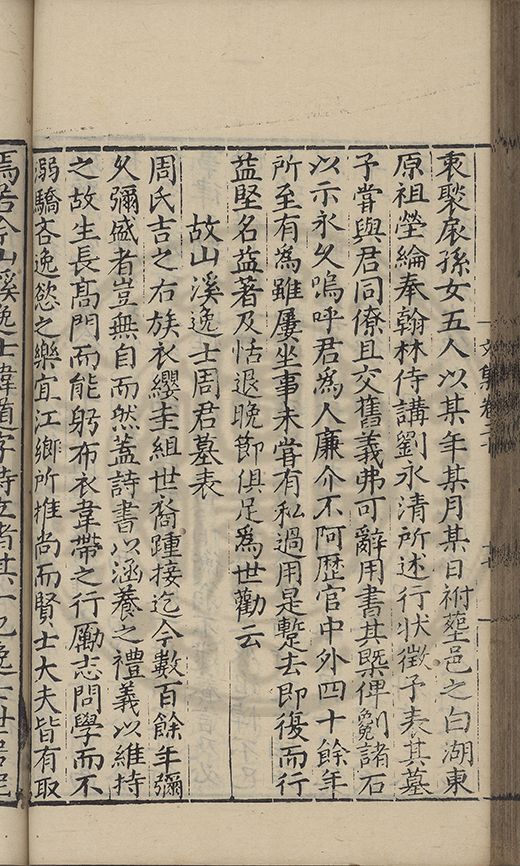 衷聚扆孫女五人以某年某月某日祔塟邑之白湖東
原祖塋綸奉翰林侍講劉永清所述行狀徵予表其墓
予甞與君同僚且交舊義弗可辭用書其槩俾劖諸石
以示永久嗚呼君爲人廉介不阿歴官中外四十餘年
所至有爲雖屢坐事未甞有私過用是蹔去即復而行
益堅名益著及恬退晚節俱足爲世勸云
故山溪逸士周君墓表
周氏吉之右族衣纓圭組世裔踵接迄今數百餘年彌
久彌盛者豈無自而然盖詩書以涵養之禮義以維持
之故生長髙門而能躬布衣韋帶之行勵志問學而不
溺驕吝逸慾之樂宜江鄉所推尚而賢士大夫皆有取
焉若今山溪逸士
文集卷二十